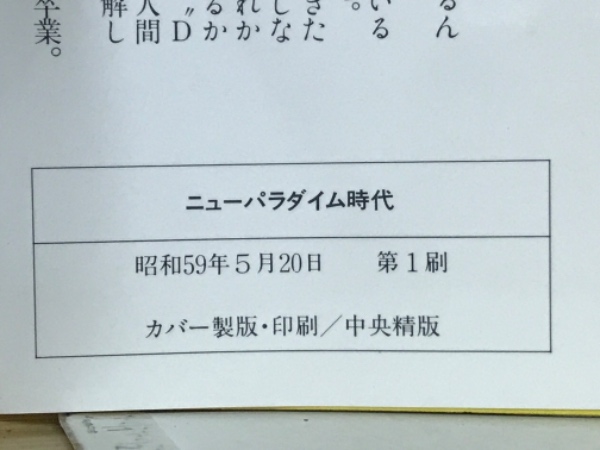 るん
いる
。
きた
しな
れか
るか
〝D
人間
解し
卒業。
ニューパラダイム時代
昭和59年5月20日 第1刷
カバー製版・印刷／中央精版